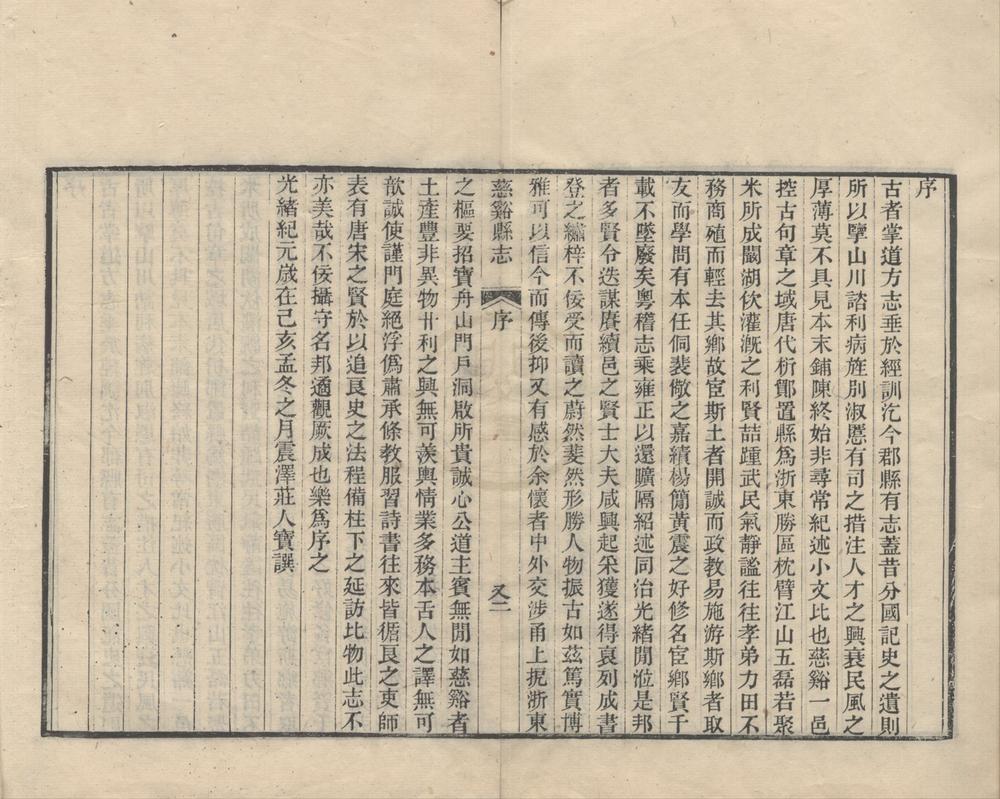 序
古者掌道方志垂於經訓汔今郡縣有志蓋昔分國記史之遺則
所以擥山川諮利病旌別淑慝有司之措注人才之興衰民風之
厚薄莫不具見本末鋪陳終始非尋常紀述小文比也慈谿一邑
控古句章之域唐代析鄮置縣爲浙東勝區枕臂江山五磊若聚
米所成闞湖佽灌漑之利賢喆踵武民氣靜謐往往孝弟力田不
務商殖而輕去其鄉故宦斯土者開誠而政教易施游斯鄉者取
友而學問有本任侗裴儆之嘉績楊簡黃震之好修名宦鄉賢千
載不墜廢矣粵稽志乘雍正以還曠隔紹述同治光緖閒涖是邦
者多賢令迭謀賡續邑之賢士大夫咸興起采獲遂得裒列成書
登之繡梓不佞受而讀之蔚然斐然形勝人物振古如茲篤實博
雅可以信今而傳後抑又有感於余懷者中外交涉甬上扼浙東
慈谿縣志
序
又二
之樞要招寶舟山門戶洞啟所貴誠心公道主賓無閒如慈谿者
土產豐非異物卄利之興無可羨輿情業多務本舌人之譯無可
歆誠使謹門庭絕浮僞肅承條教服習詩書往來皆循良之吏師
表有唐宋之賢於以追良史之法程備柱下之延訪比物此志不
亦美哉不佞攝守名邦適觀厥成也樂爲序之
光緖紀元歲在己亥孟冬之月震澤莊人寶譔